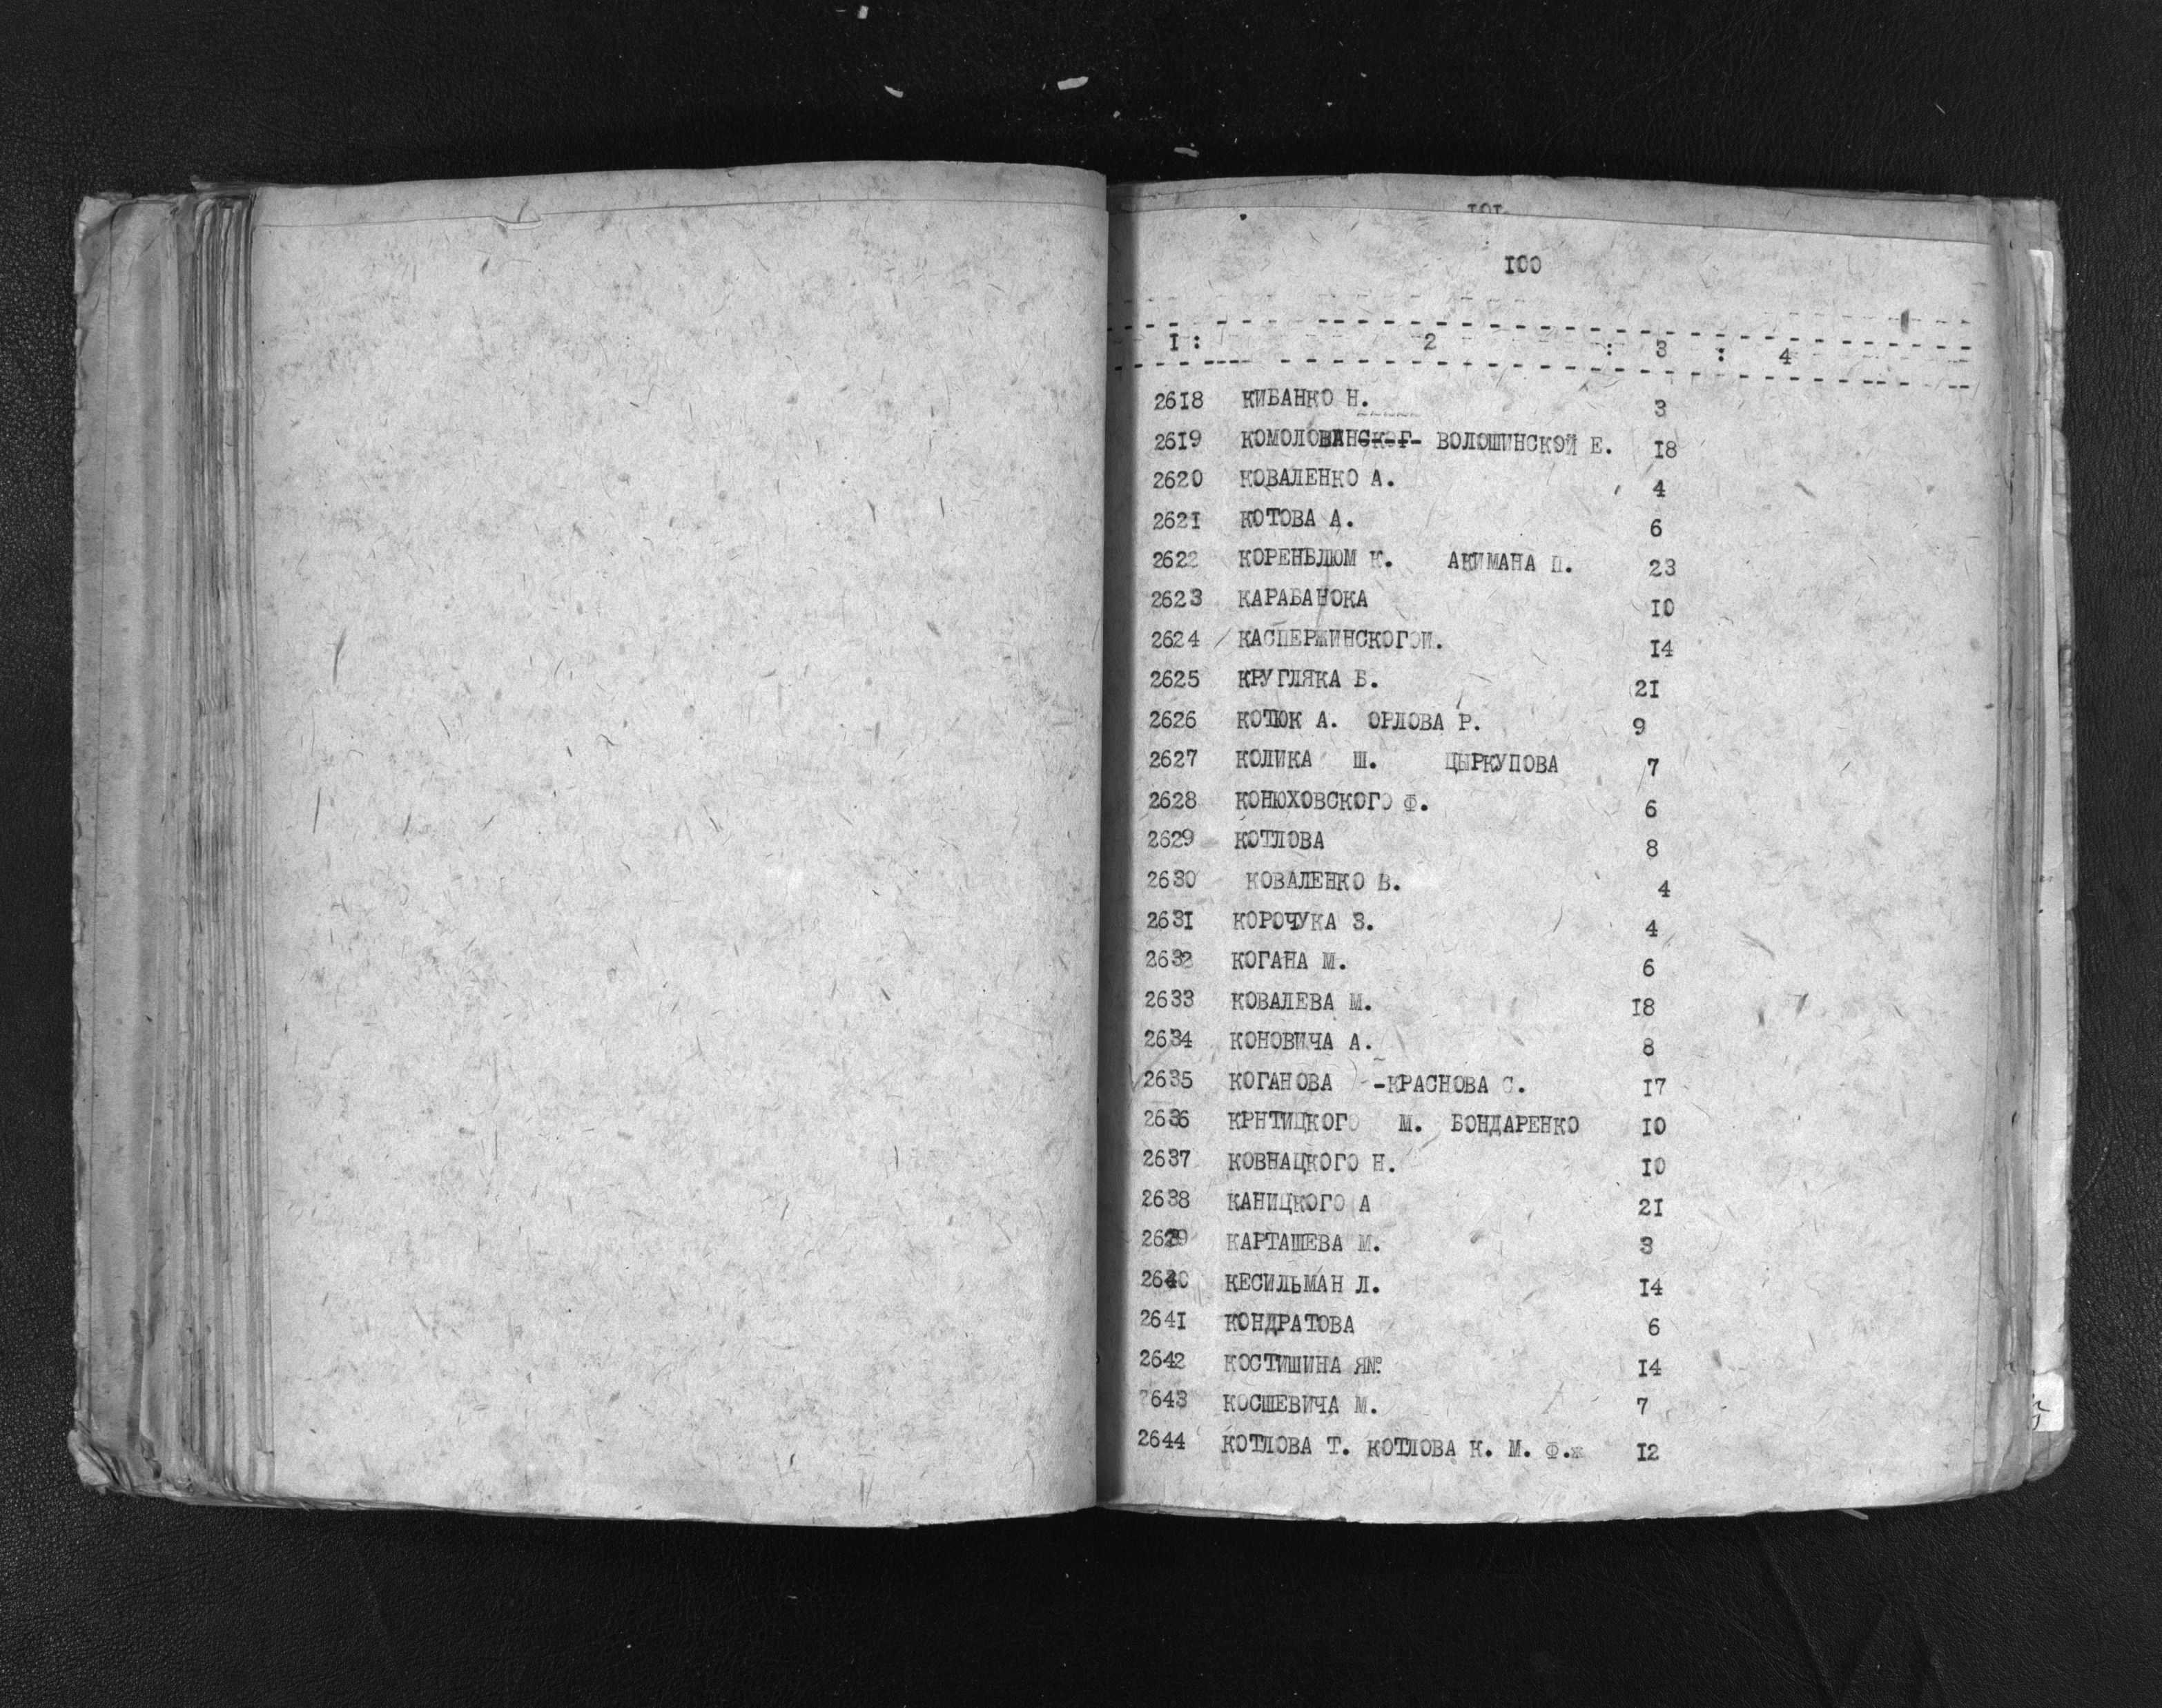 101
100
I : 2 : 3 : 4
2618 КИБАНКО Н. 3
2619 ВОЛОШИНСКОЙ Е. 18
2620 КОВАЛЕНКО А. 4
2621 КОТОВА А. 6
2622 КОРЕНБЛЮМ К. АКИМАНА П. 23
2623 КАРАБАНОКА 10
2624 КАСПЕРЖИНСКОГОИ. 14
2625 КРУГЛЯКА Б. 21
2626 КОТЮК А. ОРЛОВА Р. 9
2627 КОЛИКА Ш. ЦЫРКУПОВА 7
2628 КОНЮХОВСКОГО Ф. 6
2629 КОТЛОВА 8
2630 КОВАЛЕНКО В. 4
2631 КОРОЧУКА З. 4
2632 КОГАНА М. 6
2633 КОВАЛЕВА М. 18
2634 КОНОВИЧА А. 8
2635 КОГАНОВА -КРАСНОВА С. 17
2636 КРНТИЦКОГО М. БОНДАРЕНКО 10
2637 КОВНАЦКОГО Н. 10
2638 КАНИЦКОГО А 21
2639 КАРТАШЕВА М. 3
2640 КЕСИЛЬМАН Л. 14
2641 КОНДРАТОВА 6
2642 КОСТИШИНА 14
2643 КОСШЕВИЧА М. 7
2644 КОТЛОВА Т. КОТЛОВА К. М. Ф.ж 12